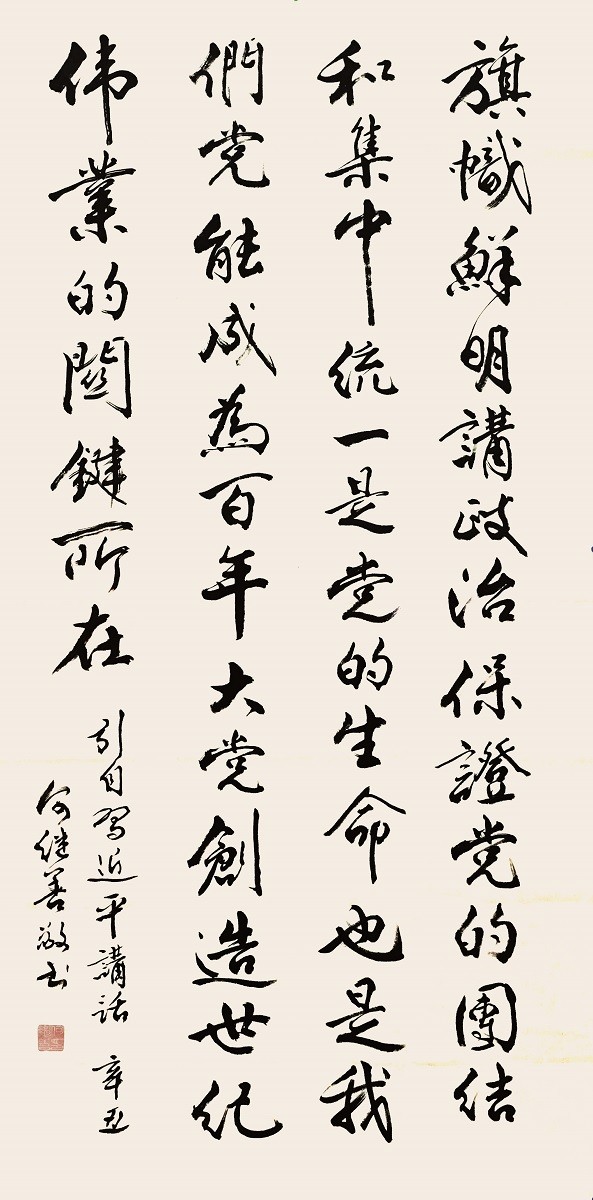 旗幟鮮明講政治保證党的團结
和集中统一是党的生命也是我
們党能成為百年大党創造世纪
伟業的関鍵所在
引自習近平講話 辛丑
何继善敬书